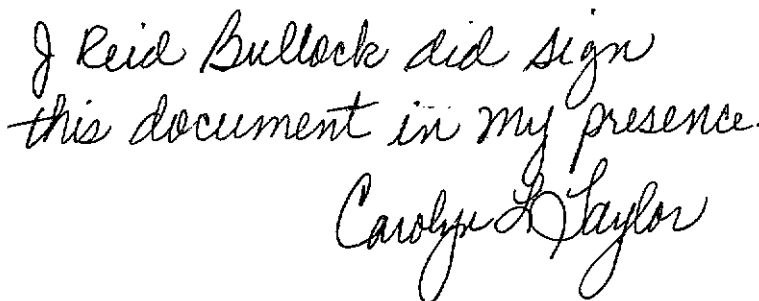 J Reid Bullock did sign
this document in my presence.
Carolyn L Taylor